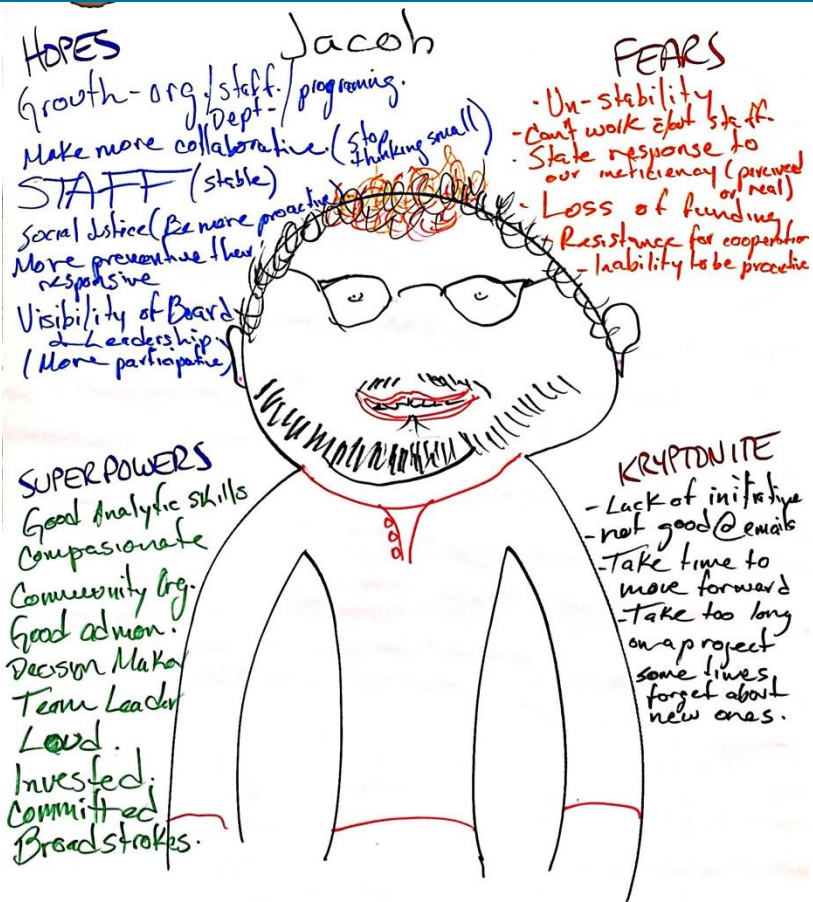 Jacob
HOPES
Growth - org./staff./programing.
Dept-
Make more collaborative. (stop
thinking small)
STAFF (stable)
Social Justice (Be more proactive)
More preventive then
responsive
Visibility of Board
& Leadership.
(More participative)
FEARS
· Un-stability
- Can't work about staff.
· State response to
our ineficiency (perceived
or real)
· Loss of funding
- Resistance for cooperation
- Inability to be proactive
SUPERPOWERS
Good Analytic skills
Compasionate
Community Org.
Good admon.
Decision Maker
Team Leader
Loud.
Invested.
Committed
Broadstrokes.
KRYPTONITE
- Lack of initiative
- not good @ emails
- Take time to
move forward
- Take too long
on a project
some times
forget about
new ones.